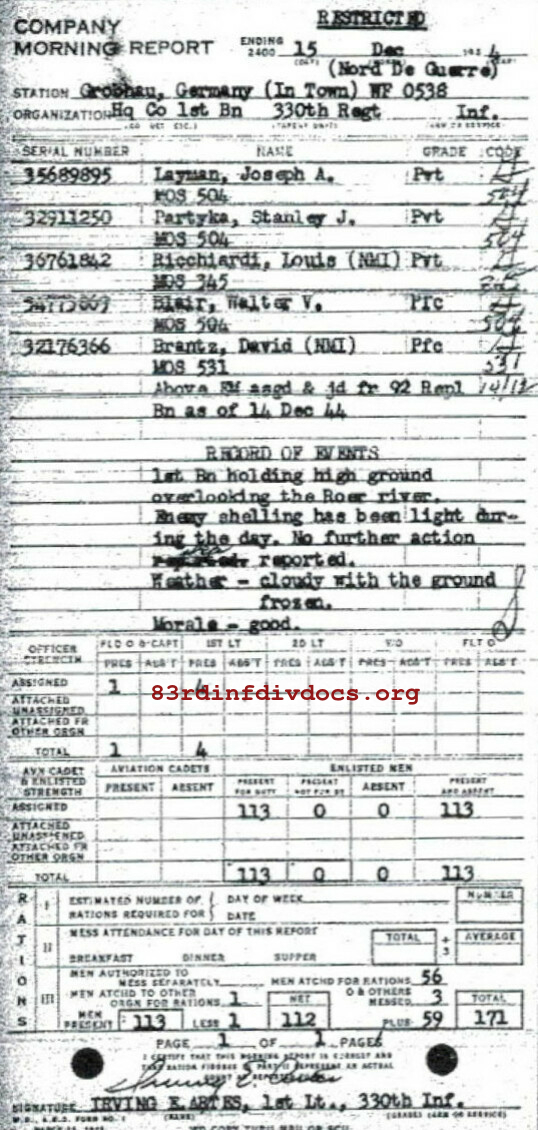 RESTRICTED
COMPANY
MORNING REPORT ENDING 2400 15 Dec 1944
(Nord De Guerre)
STATION Grobhau, Germany (In Town) WF 0538
ORGANIZATION Hq Co 1st Bn 330th Regt Inf.
SERIAL NUMBER NAME GRADE CODE
35689895 Layman, Joseph A. Pvt
MOS 504 504
32911250 Partyka, Stanley J. Pvt
MOS 504 504
36761842 Ricchiardi, Louis (NMI) Pvt
MOS 345
Blair, Walter V. Pfc
MOS 504 504
32176366 Brantz, David (NMI) Pfc
MOS 531 531
Above EM asgd & jd fr 92 Repl
Bn as of 14 Dec 44
RECORD OF EVENTS
1st Bn holding high ground
overlooking the Roer river.
Enemy shelling has been light dur-
ing the day. No further action
reported.
Weather - cloudy with the ground
frozen.
Morale - good.
OFFICER STRENGTH FLD O & CAPT 1ST LT 2D LT W O FLT O
PRES ABS'T PRES ABS'T PRES ABS'T PRES ABS'T PRES ABS'T
ASSIGNED 1 4
83rdinfdivdocs.org
ATTACHED UNASSIGNED
ATTACHED FR OTHER ORGN
TOTAL 1 4
AVN CADET & ENLISTED STRENGTH AVIATION CADETS ENLISTED MEN
PRESENT ABSENT PRESENT FOR DUTY PRESENT NOT FOR DY ABSENT PRESENT AND ABSENT
ASSIGNED 113 0 0 113
ATTACHED UNASSIGNED
ATTACHED FR OTHER ORGN
TOTAL 113 0 0 113
RATIONS
I ESTIMATED NUMBER OF RATIONS REQUIRED FOR { DAY OF WEEK DATE NUMBER
II MESS ATTENDANCE FOR DAY OF THIS REPORT TOTAL ÷ 3 AVERAGE
BREAKFAST DINNER SUPPER
III MEN AUTHORIZED TO MESS SEPARATELY MEN ATCHD FOR RATIONS 56
MEN ATCHD TO OTHER ORGN FOR RATIONS 1 NET O & OTHERS MESSED 3 TOTAL
MEN PRESENT 113 LESS 1 112 PLUS 59 171
PAGE 1 OF 1 PAGES
I CERTIFY THAT THIS MORNING REPORT IS CORRECT AND
THAT RATION FIGURES IN PART II REPRESENT AN ACTUAL
SIGNATURE IRVING K. ARTES, 1st Lt., 330th Inf.
(NAME) (GRADE) (ARM OR SERVICE)
W.D., A.G.O. FORM NO. 1